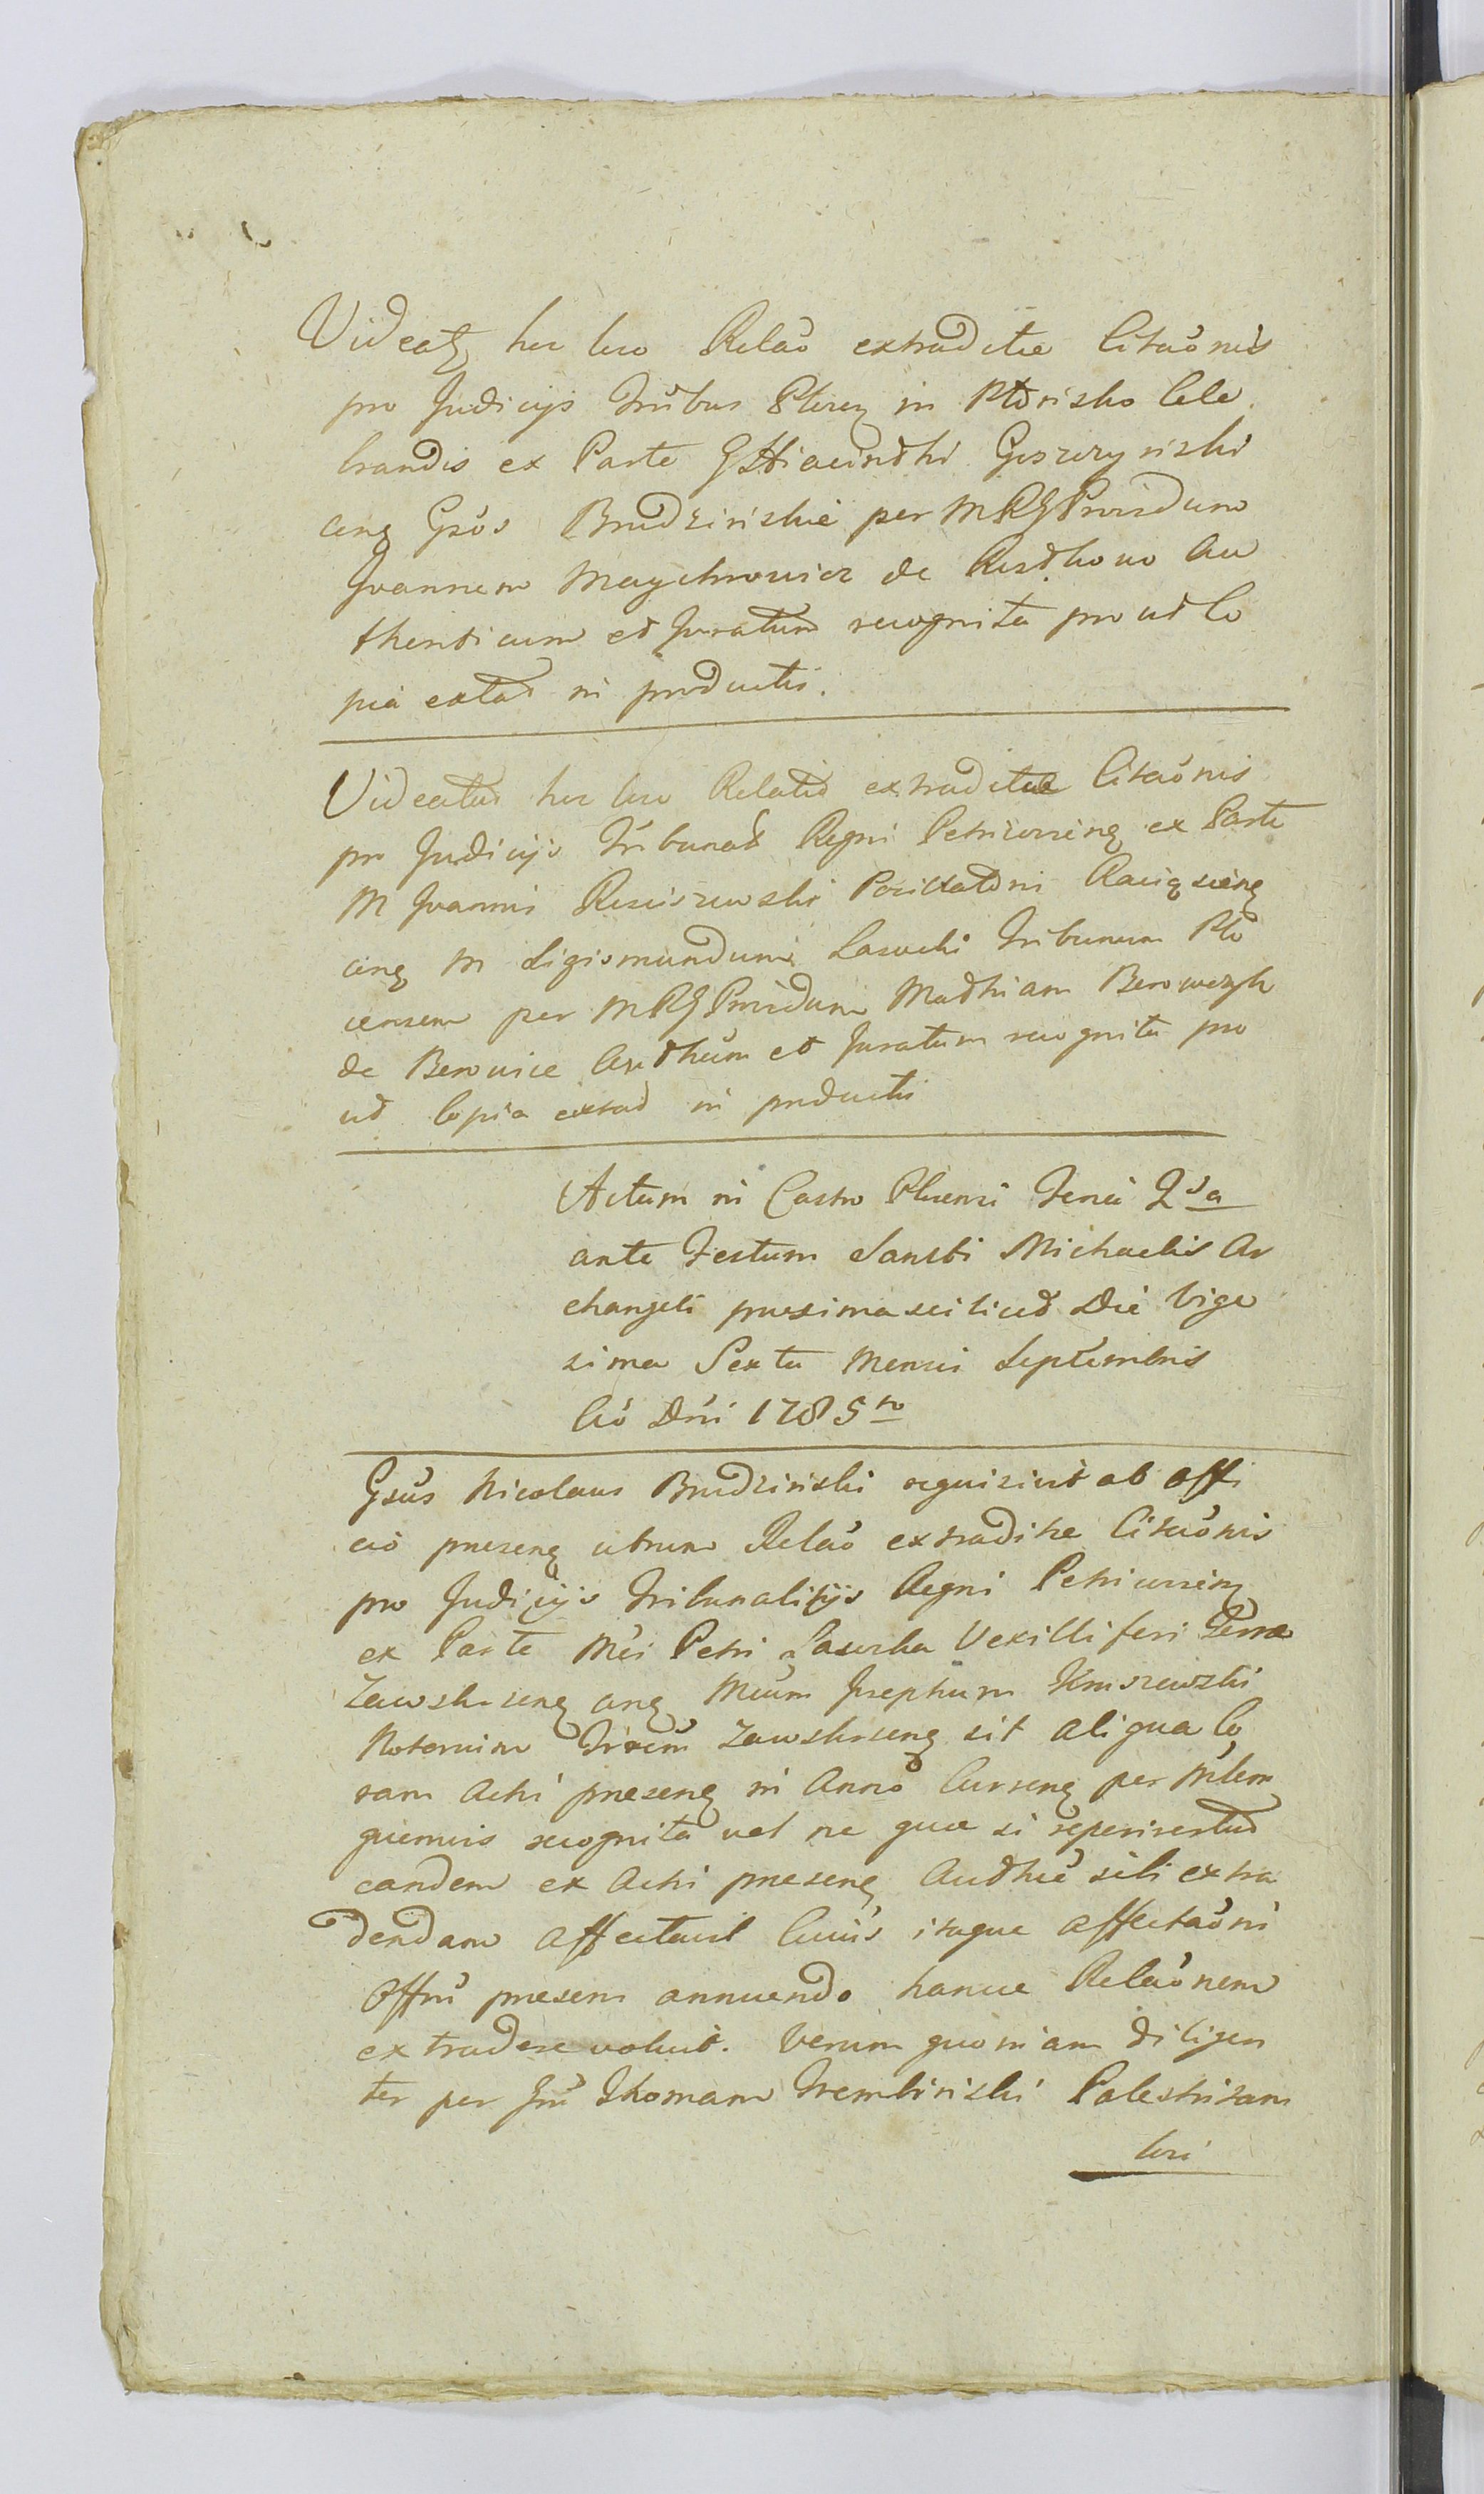 Videatz hic loco Relaõ extraditæ Citaõnis
pro Judicijs Tribus in Cele
brandis ex Parte G Hiacinthi Goszczynski
cing Gsos Brudzinskie per MRG Providum
Joannem Maychrowicz de au
thenticum et Juratum recognita prout Co
pia extat in productis.
Videatur hic loco Relatio extraditæ Citaõnis
pro Judicijs Tribunal Regni Petricovieng ex Parte
M Joannis
cing M Sigismundum Lasocki Tribunum Plo
censem per MRG Providum Mathiam
de Authcum et Juratum recognita pro
ut Copia extat in productis
Actum in Castro Plocensi Feria 2da
ante Festum Sancti Michaelis Ar
changeli proxima scilicet Die Vige
sima Sexta Mensis Septembris
Aõ Dñi 1785to
Gsus Nicolaus Brudzinski requisivit ab Offi
cio præseng utrum Relaõ extraditæ Citaõnis
pro Judicijs Tribunalitijs Regni Petricovieng
ex Parte Mci Petri Vexilliferi Terræ
Zawskrseng cing Mcum Josephum
Notarium Zawskrseng sit aliqua Co
ram Actis præseng in Anno Curreng per Mlem
quemvis recognita vel ne quæ si reperiretur
eandem ex Actis præseng Authce sibi extra
dendam affectavit Cuius itaque affectaõni
Offm præsens annuendo hance Relaõnem
extradere voluit. Verum quoniam diligen
ter per Gm Thomam Trembinski Palestritam
loci